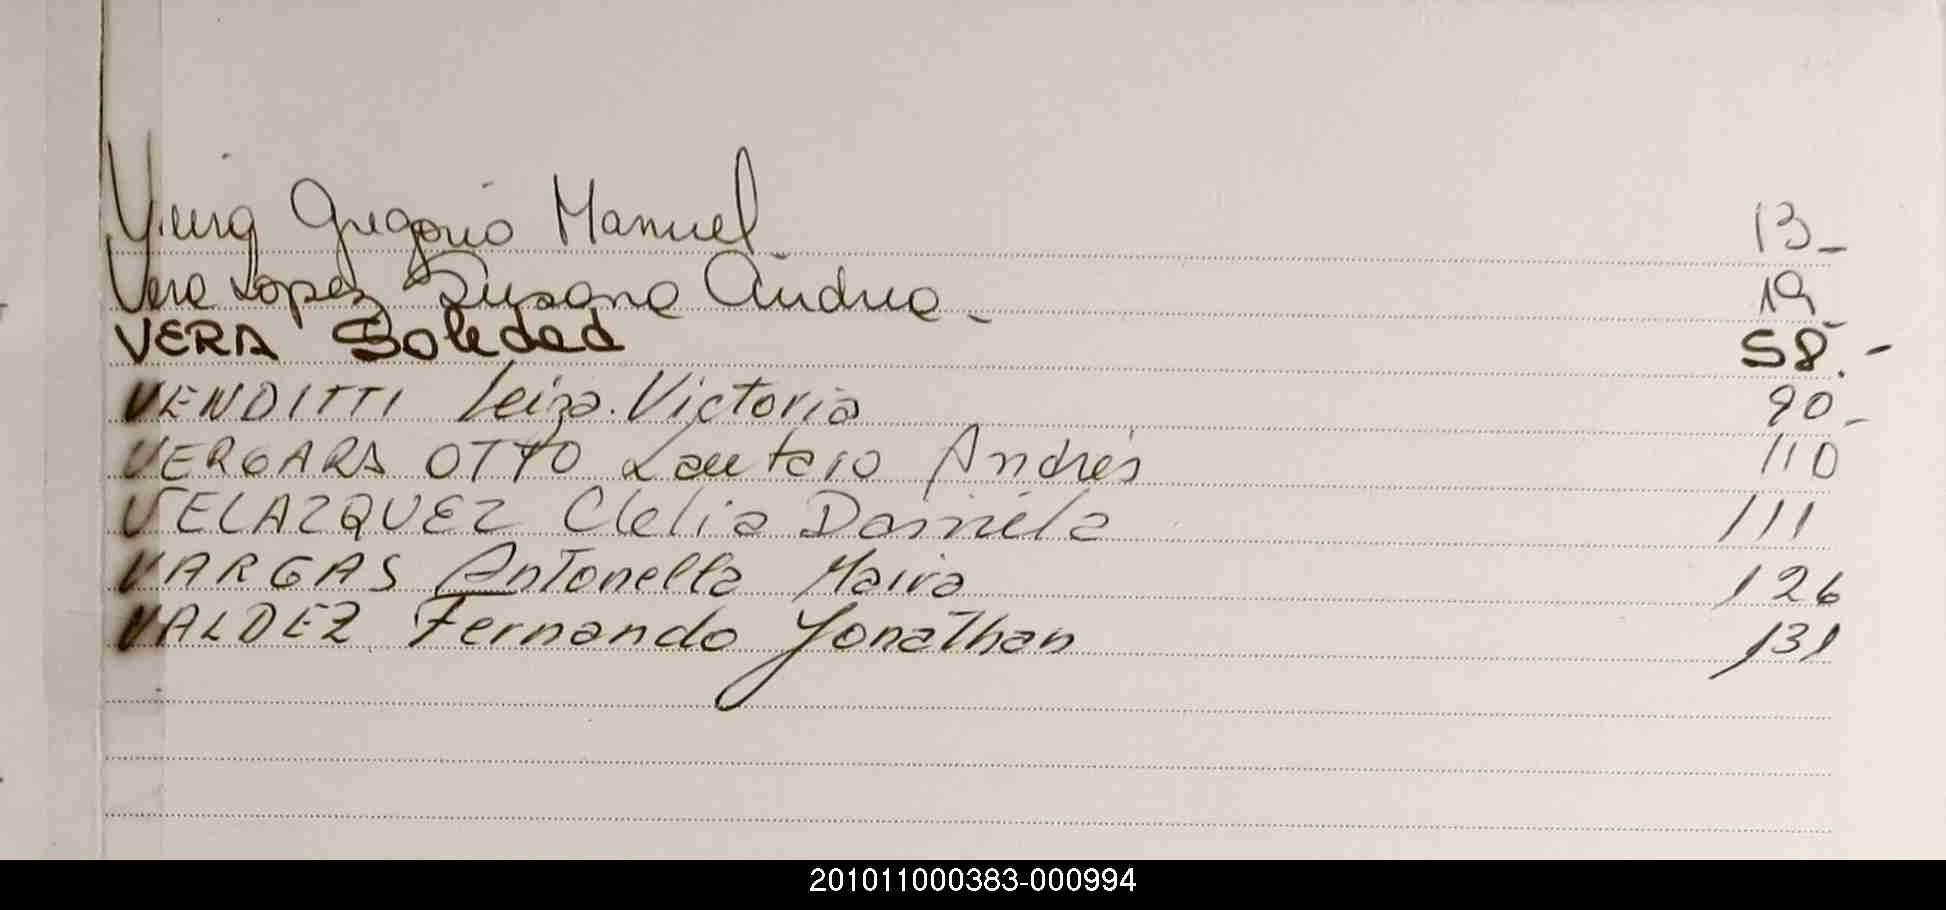 Vieira Gregorio Manuel 13_
Vera Lopez Susana Andrea _ 19_
VERA Soledad 58.-
VENDITTI Leiza. Victoria 90_
VERGARA OTTO Lautaro Andrés 110
VELAZQUEZ Clelia Daniela 111
VARGAS Antonella Maira 126
VALDEZ Fernando Jonathan 131
201011000383-000994